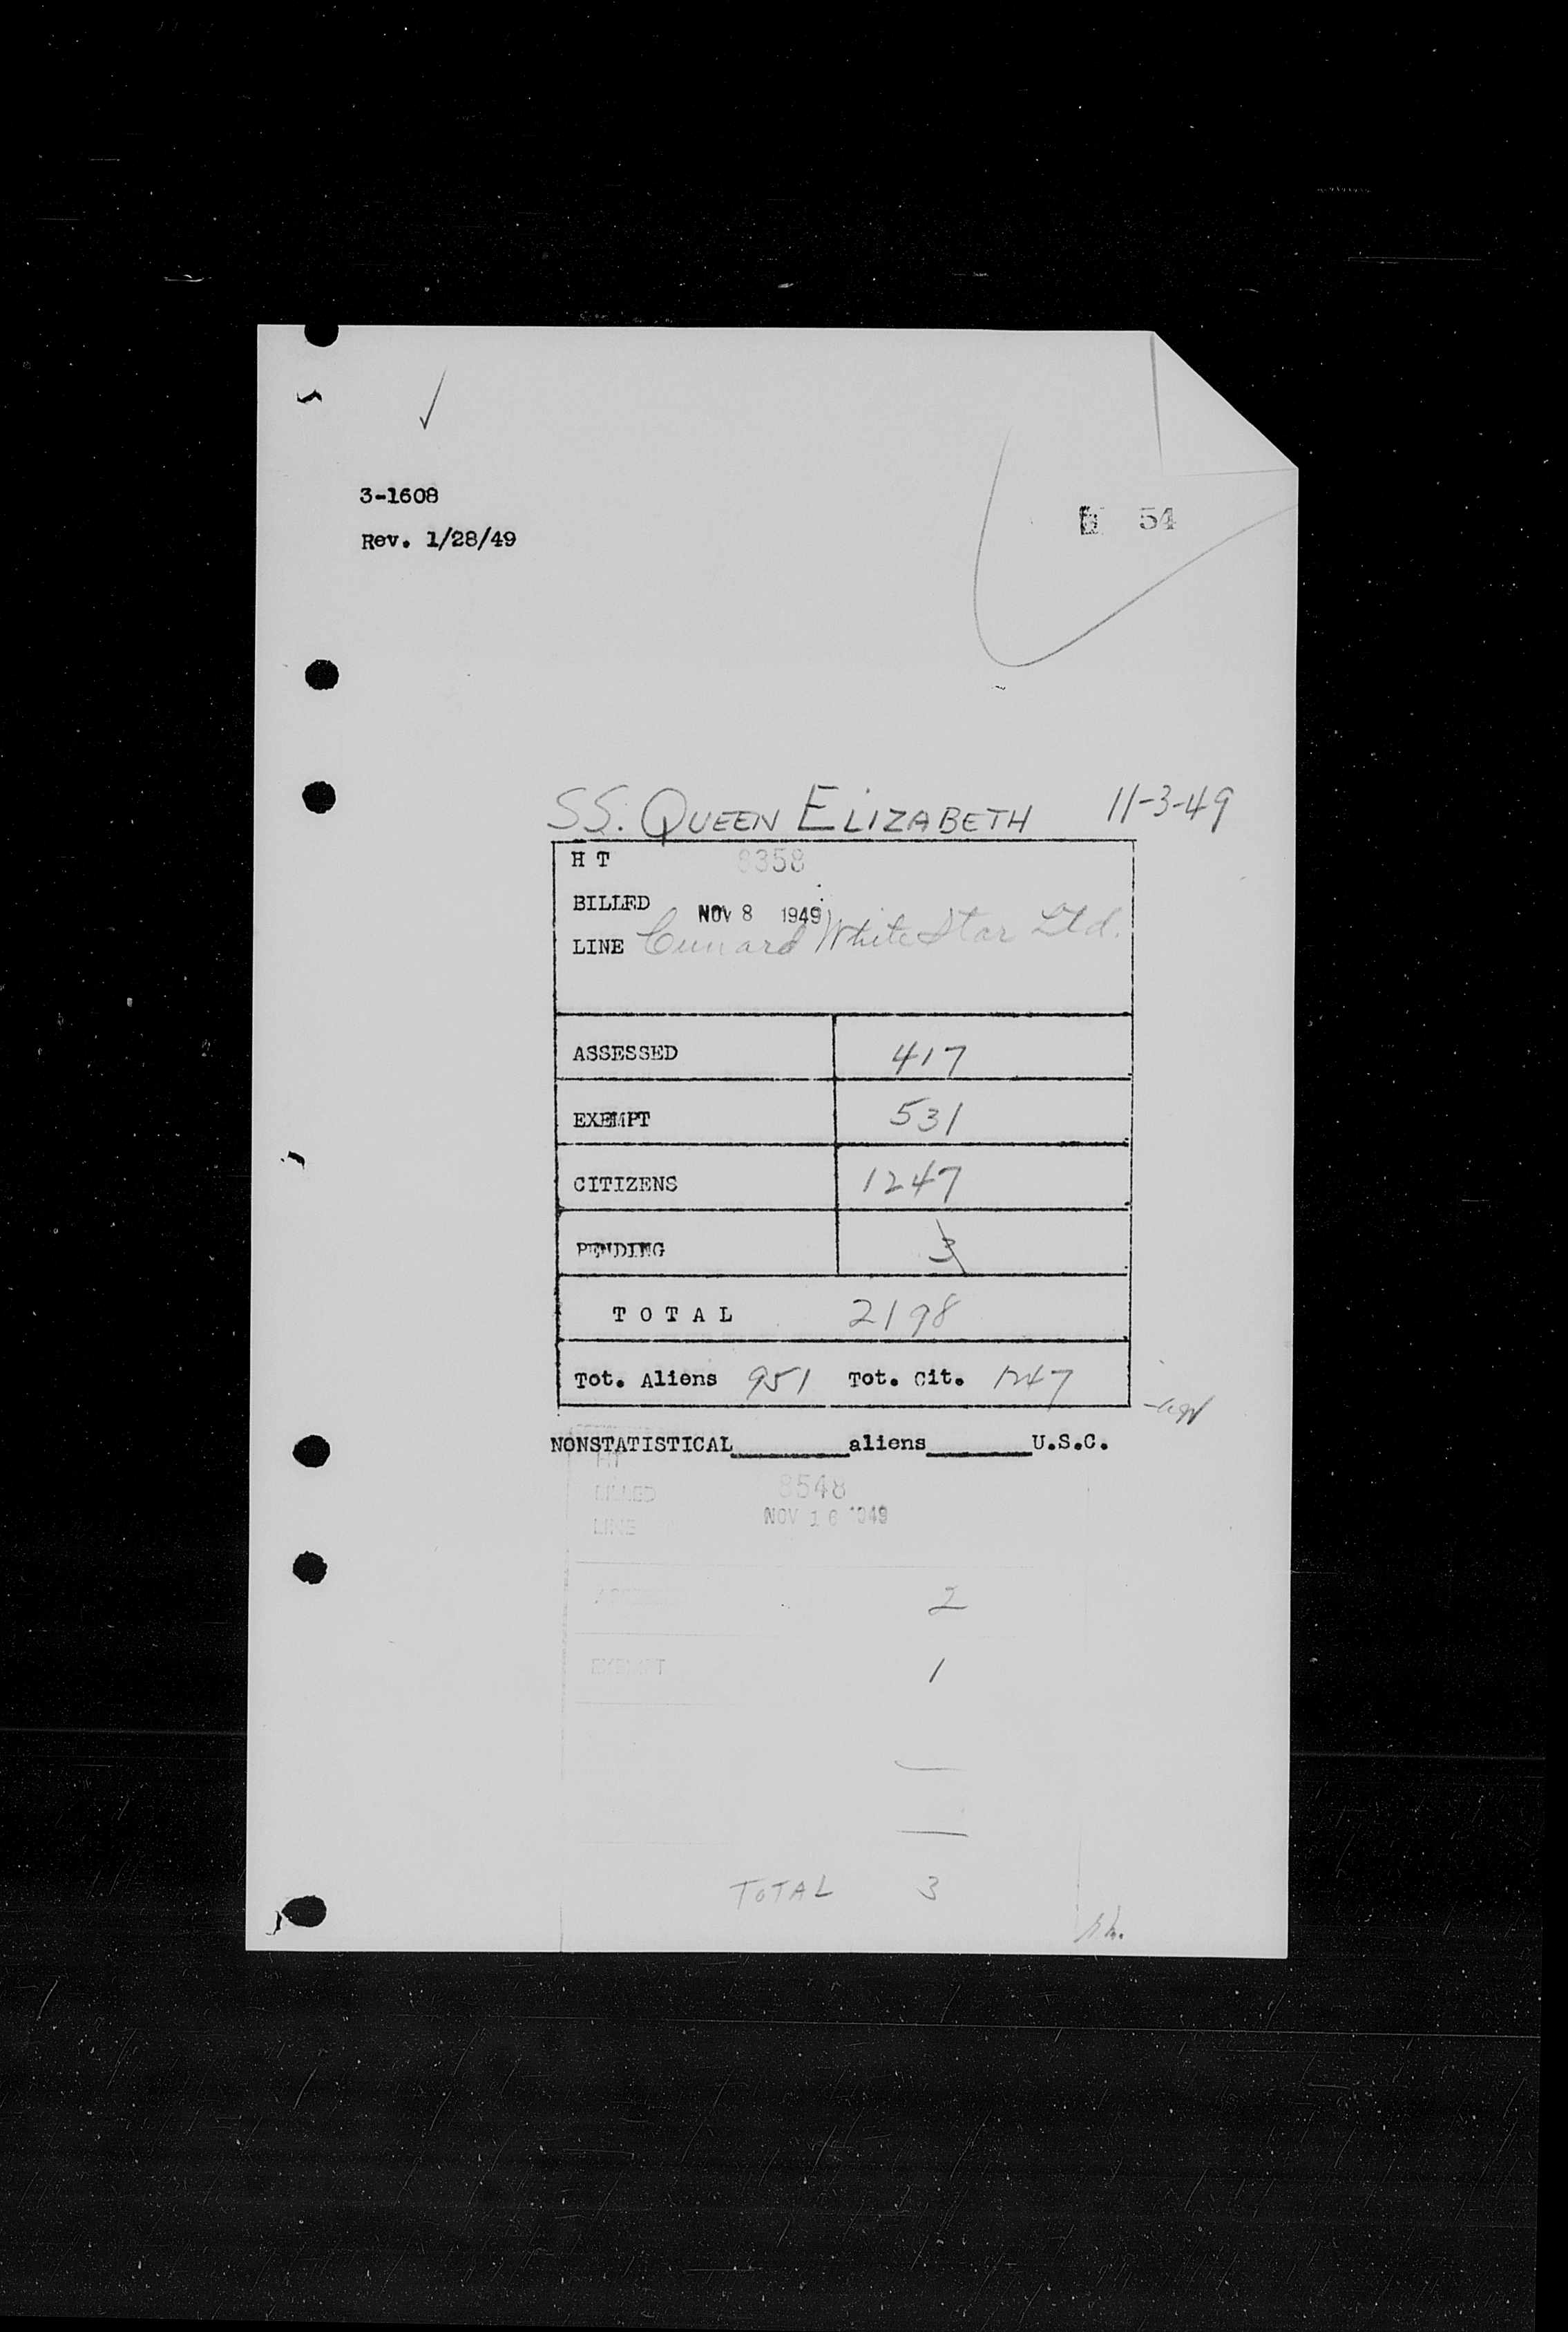 3-1608
54
Rev. 1/28/49
SS. QUEEN ELIZABETH 11-3-49
H T 8358
BILLED NOV 8 1949
LINE Cunard White Star Ltd.
ASSESSED 417
EXEMPT 531
CITIZENS 1247
PENDING 3
T O T A L 2198
Tot. Aliens 951 Tot. Cit. 1247
NONSTATISTICAL aliens U.S.C.
HT 8548
BILLED NOV 16 1949
LINE
2
EXEMPT 1
TOTAL 3